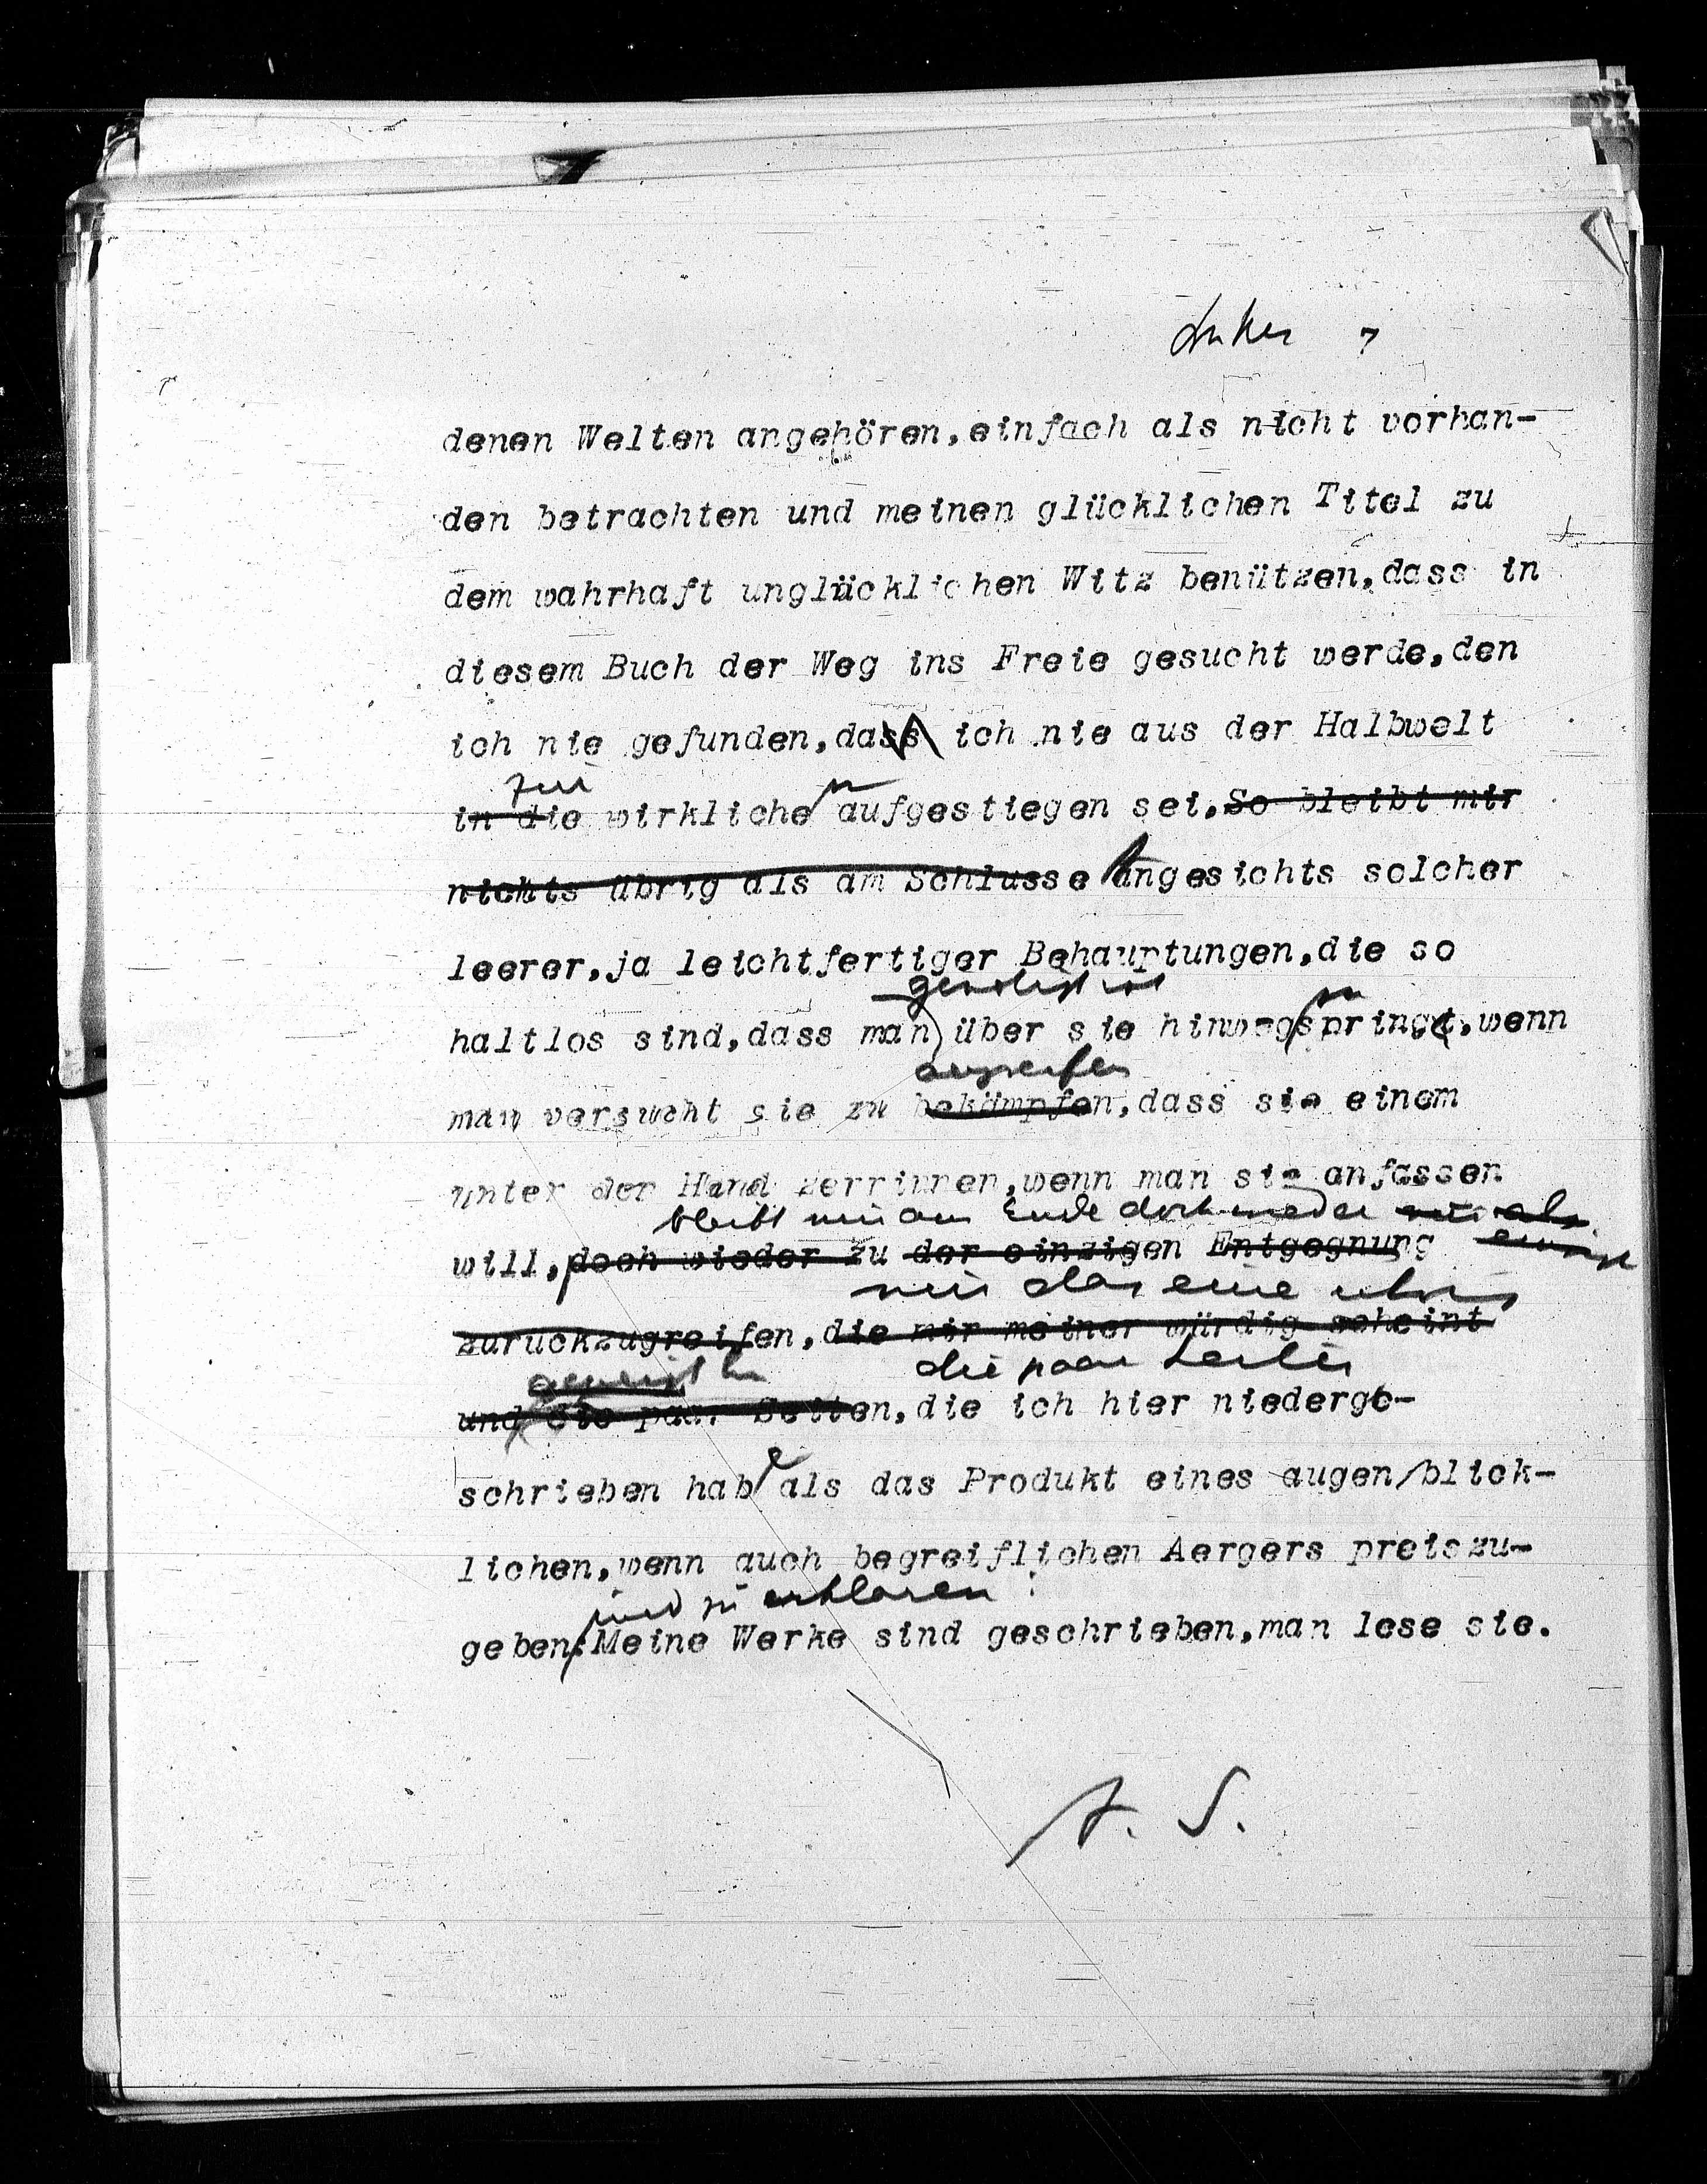 denen Welten angehören,einfach als nicht vorhan-
den betrachten und meinen glücklichen Titel zu
dem wahrhaft unglücklichen Witz benützen,dass in
diesem Buch der Weg ins Freie gesucht werde,den
ich nie gefunden,dass ich nie aus der Halbwelt
zur n
in die wirkliche aufgestiegen sei.So bleibt mir
nichts übrig als am Schlusse Angesichts solcher
leerer,ja leichtfertiger Behauptungen,die so
genötigt ist zu
haltlos sind,dass man über sie hinwegspringt,wenn
angreifen
man versucht sie zu bekämpfen,dass sie einem
unter der Hand zerrinnen,wenn man sie anfassen
bleibt mir am Ende doch wieder nur als
will,doch wieder zu der einzigen Entgegnung einzige
mir das eine übrig
zurückzugreifen,die mir meiner würdig scheint
die paar Seiten
und die paar Seiten,die ich hier niederge-
e
schrieben hab als das Produkt eines augen/blick-
lichen,wenn auch begreiflichen Aergers preiszu-
und zu erklaren :
geben.Meine Werke sind geschrieben,man lese sie.
A. S.